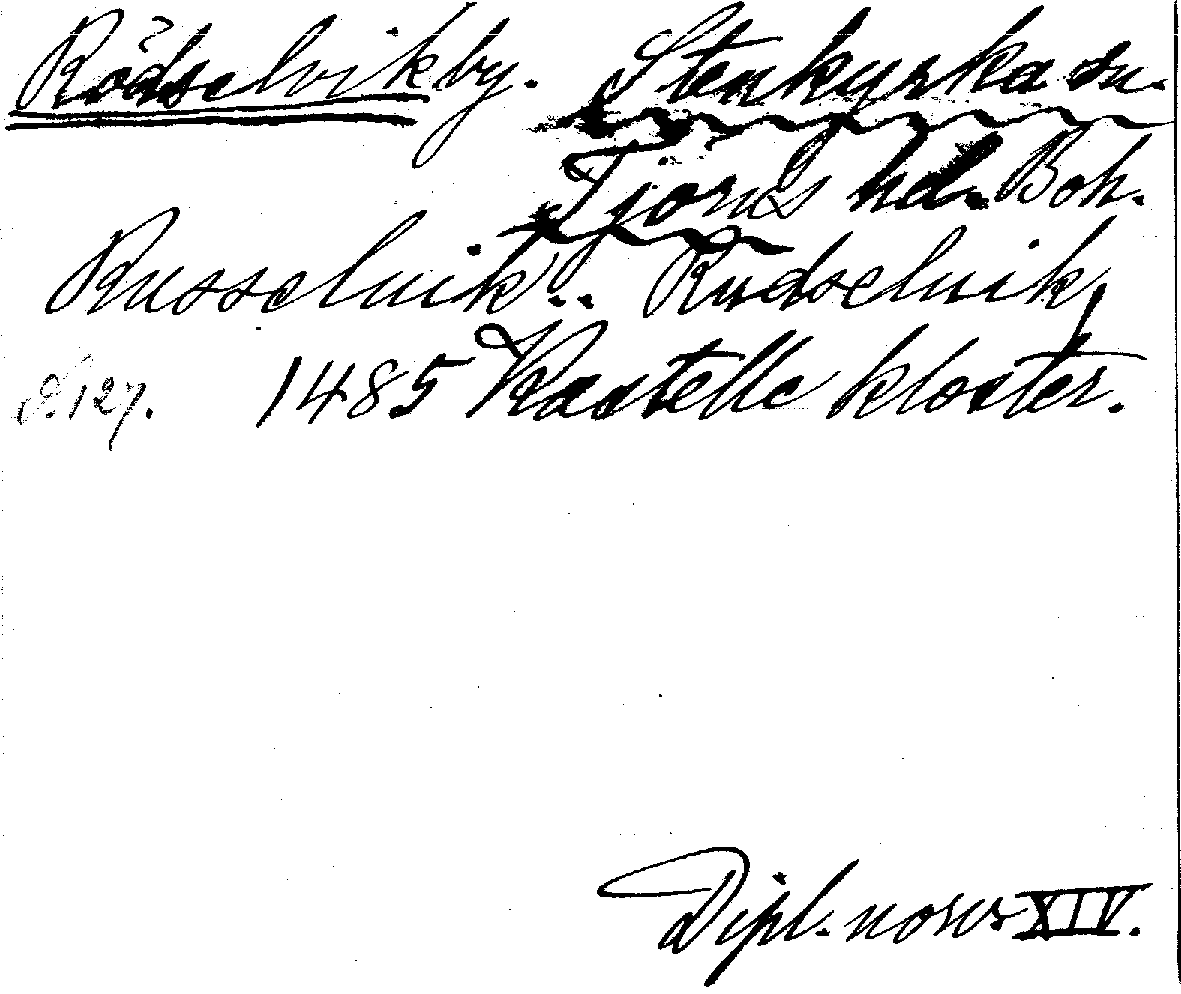 Rödselvikby. Stenkyrka sn.
Tjörns hd. Boh.
Russeluik.. Rudseluik,
S. 127. 1485 Kastelle kloster.
Dipl. norv. XIV.